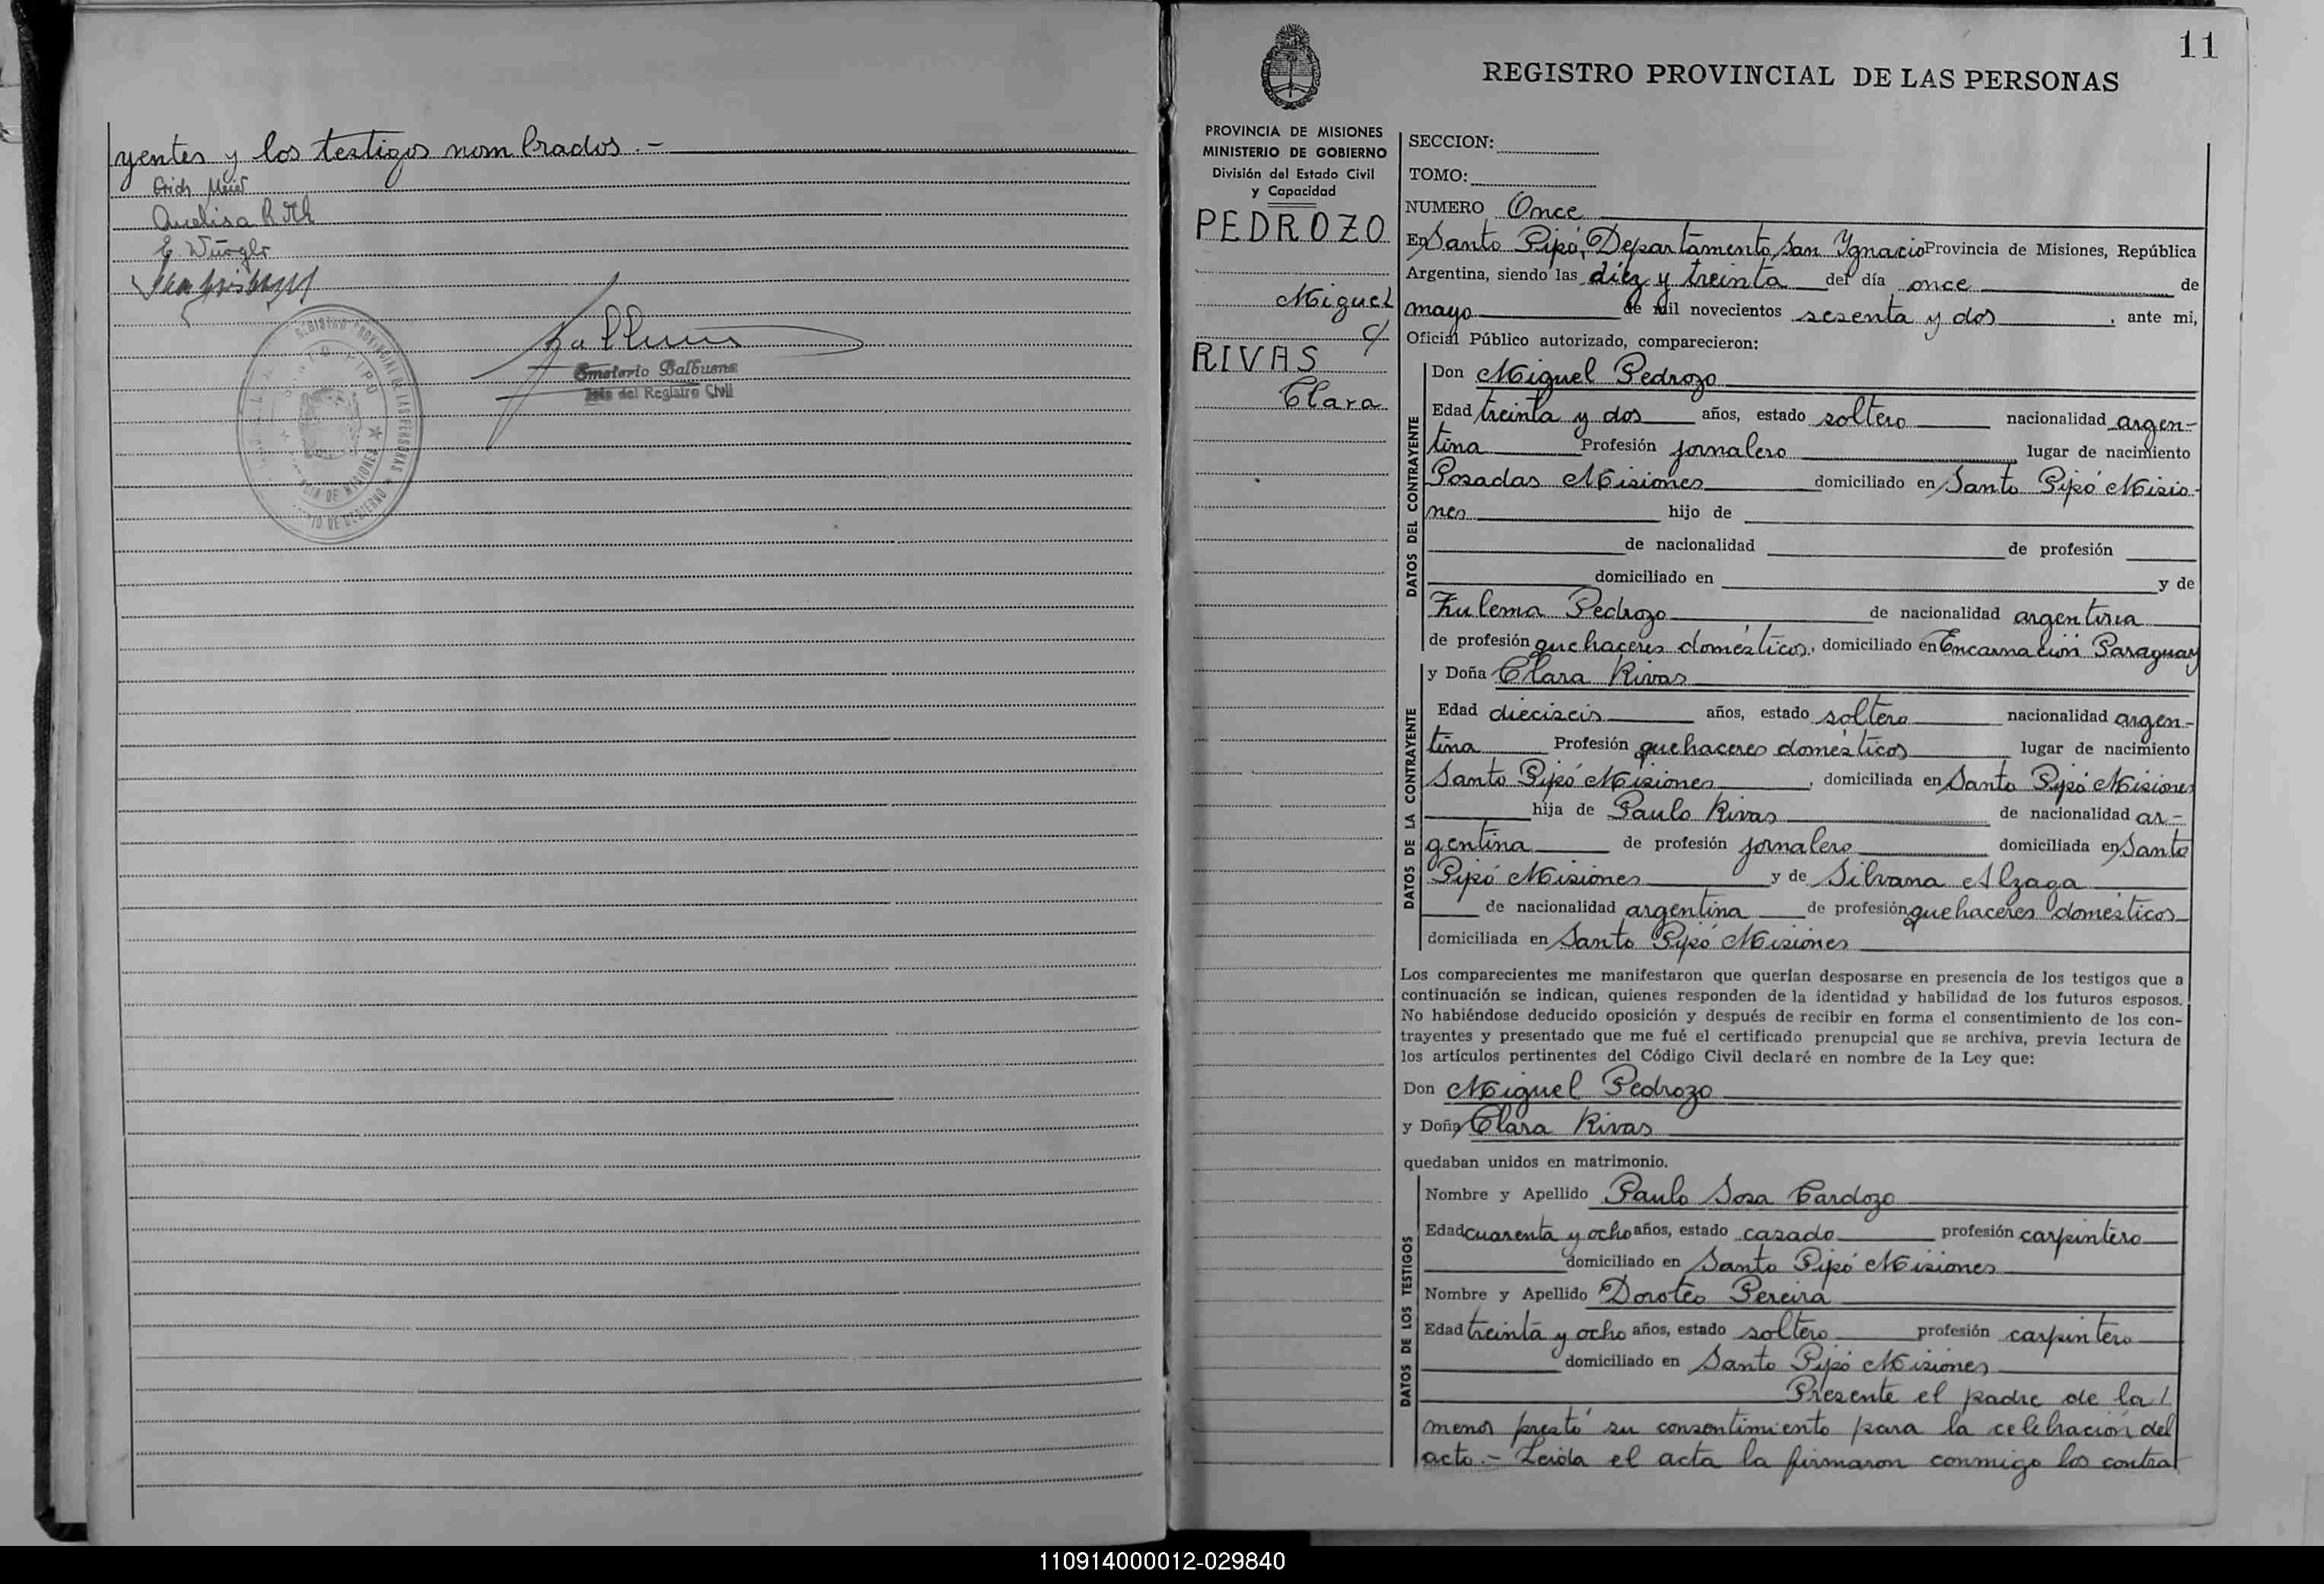 yentes y los testigos nombrados.-
Erich Meier
E. Würgler
Emeterio Balbuena
Jefe del Registro Civil
REGISTRO PROVINCIAL DE LAS PERSONAS
11
REGISTRO PROVINCIAL DE LAS PERSONAS
PROVINCIA DE MISIONES
MINISTERIO DE GOBIERNO
División del Estado Civil
y Capacidad
PEDROZO
Miguel
c/
RIVAS
Clara
SECCION:
TOMO:
NUMERO Once
En Santo Pipó, Departamento, San Ygnacio Provincia de Misiones, República
Argentina, siendo las diéz y treinta del día once de
mayo de mil novecientos sesenta y dos, ante mi,
Oficial Público autorizado, comparecieron:
DATOS DEL CONTRAYENTE
Don Miguel Pedrozo
Edad treinta y dos años, estado soltero nacionalidad argen-
tina Profesión jornalero lugar de nacimiento
Posadas Misiones domiciliado en Santo Pipó Misio-
nes hijo de
de nacionalidad de profesión
domiciliado en y de
Zulema Pedrozo de nacionalidad argentina
de profesión quehaceres domésticos, domiciliado en Encarnación Paraguay
DATOS DE LA CONTRAYENTE
y Doña Clara Rivas
Edad dieciseis años, estado soltera nacionalidad argen-
tina Profesión quehaceres domésticos lugar de nacimiento
Santo Pipó Misiones, domiciliada en Santo Pipó Misiones
hija de Paulo Rivas de nacionalidad ar-
gentina de profesión jornalero domiciliada en Santo
Pipó Misiones y de Silvana Alzaga
de nacionalidad argentina de profesión quehaceres domésticos
domiciliada en Santo Pipó Misiones
Los comparecientes me manifestaron que querían desposarse en presencia de los testigos que a
continuación se indican, quienes responden de la identidad y habilidad de los futuros esposos.
No habiéndose deducido oposición y después de recibir en forma el consentimiento de los con-
trayentes y presentado que me fué el certificado prenupcial que se archiva, previa lectura de
los artículos pertinentes del Código Civil declaré en nombre de la Ley que:
Don Miguel Pedrozo
y Doña Clara Rivas
quedaban unidos en matrimonio.
DATOS DE LOS TESTIGOS
Nombre y Apellido Paulo Sosa Cardozo
Edad cuarenta y ocho años, estado casado profesión carpintero
domiciliado en Santo Pipó Misiones
Nombre y Apellido Doroteo Pereira
Edad treinta y ocho años, estado soltero profesión carpintero
domiciliado en Santo Pipó Misiones
Presente el padre de la /
menor prestó su consentimiento para la celebración del
acto.- Leida el acta la firmaron conmigo los contra
110914000012-029840